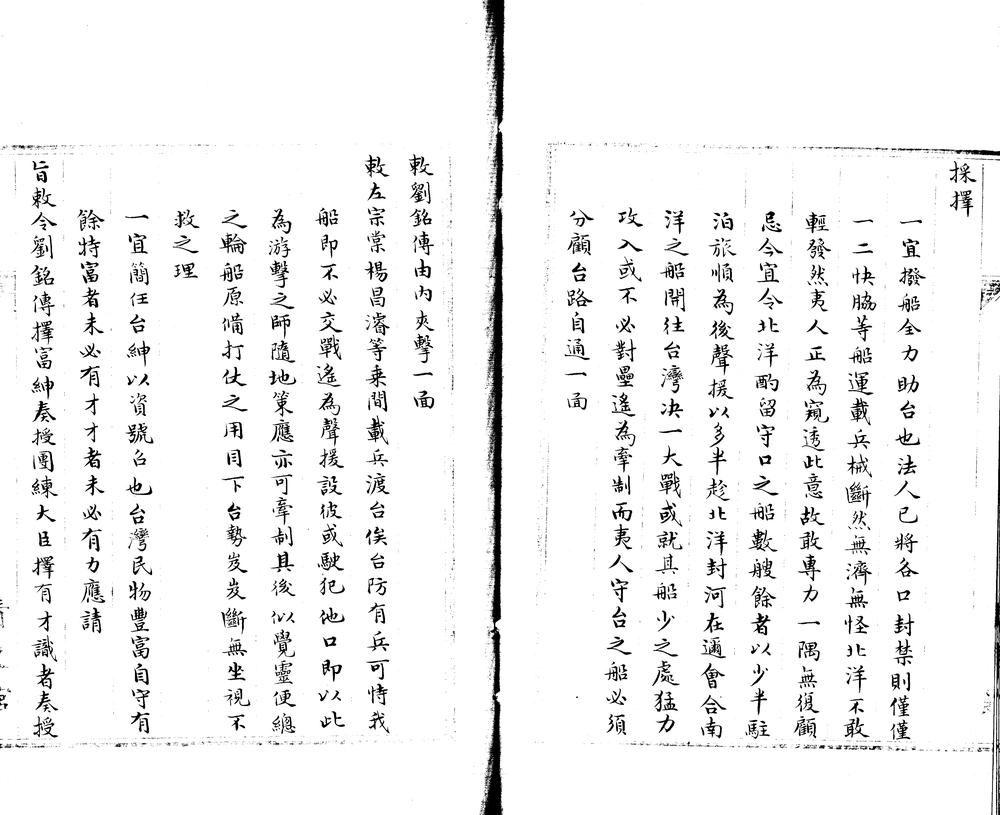 採擇
一宜撥船全力助台也法人已將各口封禁則僅僅
一二快脇等船運載兵械斷然無濟無怪北洋不敢
輕發然夷人正為窺透此意故敢專力一隅無復顧
忌今宜令北洋酌留守口之船數艘餘者以少半駐
泊旅順為後聲援以多半趁北洋封河在邇會合南
洋之船開往台灣決一大戰或就其船少之處猛力
攻入或不必對壘遙為牽制而夷人守台之船必須
分顧台路自通一面
敕劉銘傳由內夾擊一面
敕左宗棠楊昌濬等乘間載兵渡台俟台防有兵可恃我
船即不必交戰遙為聲援設彼或駛犯他口即以此
為游擊之師隨地策應亦可牽制其後似覺靈便總
之輪船原備打仗之用目下台勢岌岌斷無坐視不
救之理
一宜簡任台紳以資號召也台灣民物豐富自守有
餘特富者未必有才才者未必有力應請
旨敕令劉銘傳擇富紳奏授團練大臣擇有才識者奏授